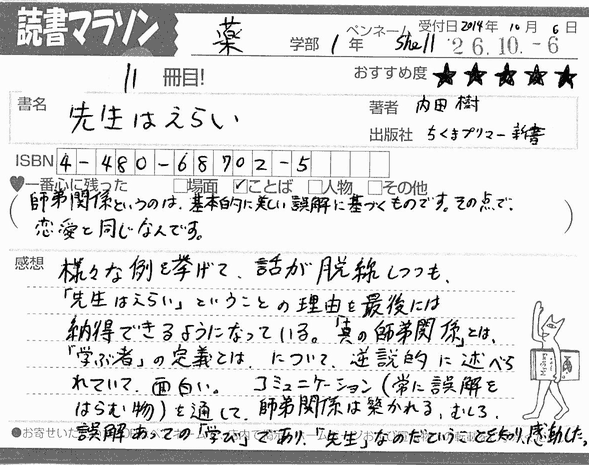 読書マラソン
薬 学部 1 年 ペンネーム shell 受付日 2014年 10月 6日
'26.10.-6
11 冊目! おすすめ度 ★★★★★
書名 先生はえらい
著者 内田 樹
出版社 ちくまプリマー新書
ISBN 4-480-68702-5
♥一番心に残った □場面 ☑ことば □人物 □その他
(師弟関係というのは、基本的に美しい誤解に基づくものです。その点で、
恋愛と同じなんです。)
感想 様々な例を挙げて、話が脱線しつつも、
「先生はえらい」ということの理由を最後には
納得できるようになっている。「真の師弟関係」とは、
「学ぶ者」の定義とは、について、逆説的に述べら
れていて、面白い。 コミュニケーション(常に誤解を
はらむ物)を通して、師弟関係は築かれる、むしろ、
誤解あっての「学び」であり、「先生」なのだということを知り、感動した。
●お寄せいた